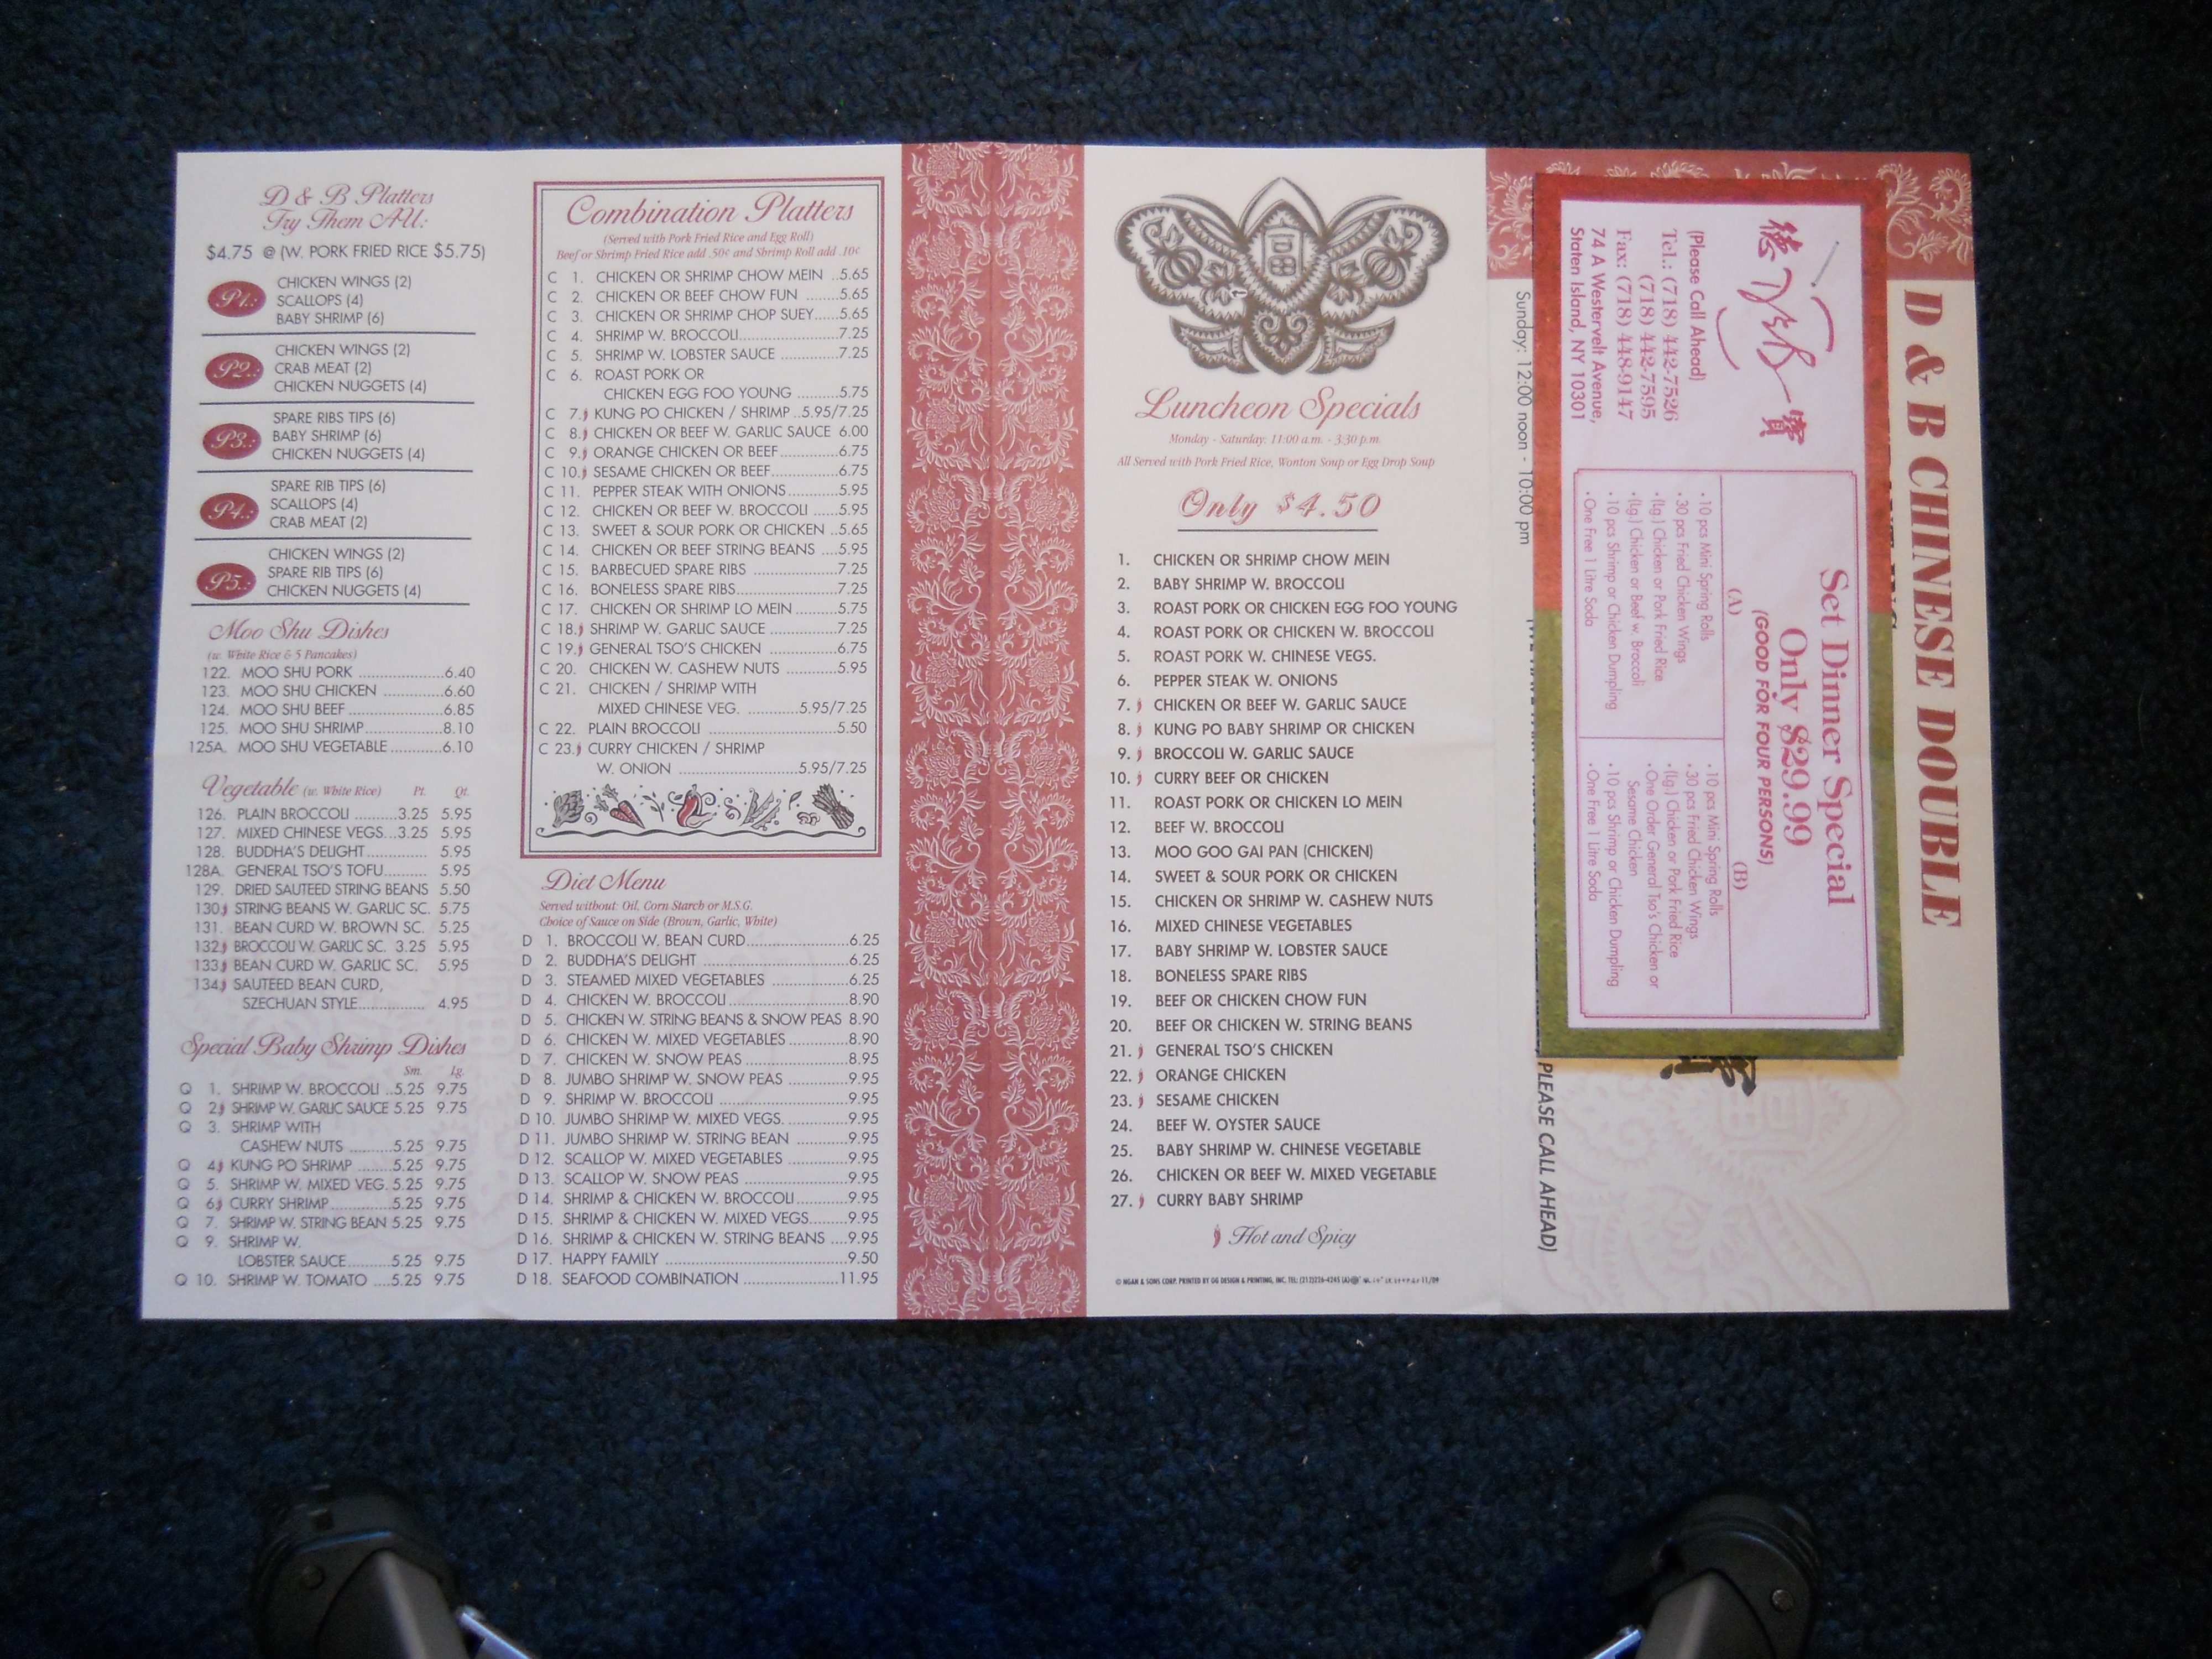 D & B Platters
Try Them All:
$4.75 @ (W. PORK FRIED RICE $5.75)
P1.:
CHICKEN WINGS (2)
SCALLOPS (4)
BABY SHRIMP (6)
P2.:
CHICKEN WINGS (2)
CRAB MEAT (2)
CHICKEN NUGGETS (4)
P3.:
SPARE RIBS TIPS (6)
BABY SHRIMP (6)
CHICKEN NUGGETS (4)
P4.:
SPARE RIB TIPS (6)
SCALLOPS (4)
CRAB MEAT (2)
P5.:
CHICKEN WINGS (2)
SPARE RIB TIPS (6)
CHICKEN NUGGETS (4)
Moo Shu Dishes
(w. White Rice & 5 Pancakes)
122. MOO SHU PORK ..................6.40
123. MOO SHU CHICKEN .............6.60
124. MOO SHU BEEF ....................6.85
125. MOO SHU SHRIMP................8.10
125A. MOO SHU VEGETABLE............6.10
Vegetable (w. White Rice) Pt. Qt.
126. PLAIN BROCCOLI ..........3.25 5.95
127. MIXED CHINESE VEGS...3.25 5.95
128. BUDDHA'S DELIGHT.............. 5.95
128A. GENERAL TSO'S TOFU.......... 5.95
129. DRIED SAUTEED STRING BEANS 5.50
130. STRING BEANS W. GARLIC SC. 5.75
131. BEAN CURD W. BROWN SC. 5.25
132. BROCCOLI W. GARLIC SC. 3.25 5.95
133. BEAN CURD W. GARLIC SC. 5.95
134. SAUTEED BEAN CURD,
SZECHUAN STYLE................ 4.95
Special Baby Shrimp Dishes
Sm. Lg.
Q 1. SHRIMP W. BROCCOLI ..5.25 9.75
Q 2. SHRIMP W. GARLIC SAUCE 5.25 9.75
Q 3. SHRIMP WITH
CASHEW NUTS ..........5.25 9.75
Q 4. KUNG PO SHRIMP .......5.25 9.75
Q 5. SHRIMP W. MIXED VEG. 5.25 9.75
Q 6. CURRY SHRIMP.............5.25 9.75
Q 7. SHRIMP W. STRING BEAN 5.25 9.75
Q 9. SHRIMP W.
LOBSTER SAUCE...........5.25 9.75
Q 10. SHRIMP W. TOMATO ....5.25 9.75
Combination Platters
(Served with Pork Fried Rice and Egg Roll)
Beef or Shrimp Fried Rice add .50¢ and Shrimp Roll add .10¢
C 1. CHICKEN OR SHRIMP CHOW MEIN ..5.65
C 2. CHICKEN OR BEEF CHOW FUN ........5.65
C 3. CHICKEN OR SHRIMP CHOP SUEY......5.65
C 4. SHRIMP W. BROCCOLI.....................7.25
C 5. SHRIMP W. LOBSTER SAUCE .............7.25
C 6. ROAST PORK OR
CHICKEN EGG FOO YOUNG ..........5.75
C 7. KUNG PO CHICKEN / SHRIMP ..5.95/7.25
C 8. CHICKEN OR BEEF W. GARLIC SAUCE 6.00
C 9. ORANGE CHICKEN OR BEEF.............6.75
C 10. SESAME CHICKEN OR BEEF...............6.75
C 11. PEPPER STEAK WITH ONIONS............5.95
C 12. CHICKEN OR BEEF W. BROCCOLI ......5.95
C 13. SWEET & SOUR PORK OR CHICKEN ..5.65
C 14. CHICKEN OR BEEF STRING BEANS ....5.95
C 15. BARBECUED SPARE RIBS ...................7.25
C 16. BONELESS SPARE RIBS......................7.25
C 17. CHICKEN OR SHRIMP LO MEIN ..........5.75
C 18. SHRIMP W. GARLIC SAUCE ................7.25
C 19. GENERAL TSO'S CHICKEN .................6.75
C 20. CHICKEN W. CASHEW NUTS .............5.95
C 21. CHICKEN / SHRIMP WITH
MIXED CHINESE VEG. ............5.95/7.25
C 22. PLAIN BROCCOLI ............................5.50
C 23. CURRY CHICKEN / SHRIMP
W. ONION .........................5.95/7.25
Diet Menu
Served without: Oil, Corn Starch or M.S.G.
Choice of Sauce on Side (Brown, Garlic, White)
D 1. BROCCOLI W. BEAN CURD.....................6.25
D 2. BUDDHA'S DELIGHT ..............................6.25
D 3. STEAMED MIXED VEGETABLES .................6.25
D 4. CHICKEN W. BROCCOLI.........................8.90
D 5. CHICKEN W. STRING BEANS & SNOW PEAS 8.90
D 6. CHICKEN W. MIXED VEGETABLES .............8.90
D 7. CHICKEN W. SNOW PEAS ......................8.95
D 8. JUMBO SHRIMP W. SNOW PEAS .............9.95
D 9. SHRIMP W. BROCCOLI ...........................9.95
D 10. JUMBO SHRIMP W. MIXED VEGS. ..............9.95
D 11. JUMBO SHRIMP W. STRING BEAN ............9.95
D 12. SCALLOP W. MIXED VEGETABLES .............9.95
D 13. SCALLOP W. SNOW PEAS .......................9.95
D 14. SHRIMP & CHICKEN W. BROCCOLI...........9.95
D 15. SHRIMP & CHICKEN W. MIXED VEGS.........9.95
D 16. SHRIMP & CHICKEN W. STRING BEANS ....9.95
D 17. HAPPY FAMILY .......................................9.50
D 18. SEAFOOD COMBINATION .....................11.95
Luncheon Specials
Monday - Saturday: 11:00 a.m. - 3:30 p.m.
All Served with Pork Fried Rice, Wonton Soup or Egg Drop Soup
Only $4.50
1. CHICKEN OR SHRIMP CHOW MEIN
2. BABY SHRIMP W. BROCCOLI
3. ROAST PORK OR CHICKEN EGG FOO YOUNG
4. ROAST PORK OR CHICKEN W. BROCCOLI
5. ROAST PORK W. CHINESE VEGS.
6. PEPPER STEAK W. ONIONS
7. CHICKEN OR BEEF W. GARLIC SAUCE
8. KUNG PO BABY SHRIMP OR CHICKEN
9. BROCCOLI W. GARLIC SAUCE
10. CURRY BEEF OR CHICKEN
11. ROAST PORK OR CHICKEN LO MEIN
12. BEEF W. BROCCOLI
13. MOO GOO GAI PAN (CHICKEN)
14. SWEET & SOUR PORK OR CHICKEN
15. CHICKEN OR SHRIMP W. CASHEW NUTS
16. MIXED CHINESE VEGETABLES
17. BABY SHRIMP W. LOBSTER SAUCE
18. BONELESS SPARE RIBS
19. BEEF OR CHICKEN CHOW FUN
20. BEEF OR CHICKEN W. STRING BEANS
21. GENERAL TSO'S CHICKEN
22. ORANGE CHICKEN
23. SESAME CHICKEN
24. BEEF W. OYSTER SAUCE
25. BABY SHRIMP W. CHINESE VEGETABLE
26. CHICKEN OR BEEF W. MIXED VEGETABLE
27. CURRY BABY SHRIMP
Hot and Spicy
© NGAN & SONS CORP. PRINTED BY GG DESIGN & PRINTING, INC. TEL: (212)226-4245 11/09
D & B CHINESE DOUBLE
德
寶
(Please Call Ahead)
Tel.: (718) 442-7526
(718) 442-7595
Fax: (718) 448-9147
74 A Westervelt Avenue,
Staten Island, NY 10301
Set Dinner Special
Only $29.99
(GOOD FOR FOUR PERSONS)
(A)
• 10 pcs Mini Spring Rolls
• 30 pcs Fried Chicken Wings
• (Lg.) Chicken or Pork Fried Rice
• (Lg.) Chicken or Beef w. Broccoli
• 10 pcs Shrimp or Chicken Dumpling
• One Free 1 Litre Soda
(B)
• 10 pcs Mini Spring Rolls
• 30 pcs Fried Chicken Wings
• (Lg.) Chicken or Pork Fried Rice
• One Order General Tso's Chicken or
Sesame Chicken
• 10 pcs Shrimp or Chicken Dumpling
• One Free 1 Litre Soda
Sunday: 12:00 noon - 10:00 pm
PLEASE CALL AHEAD)